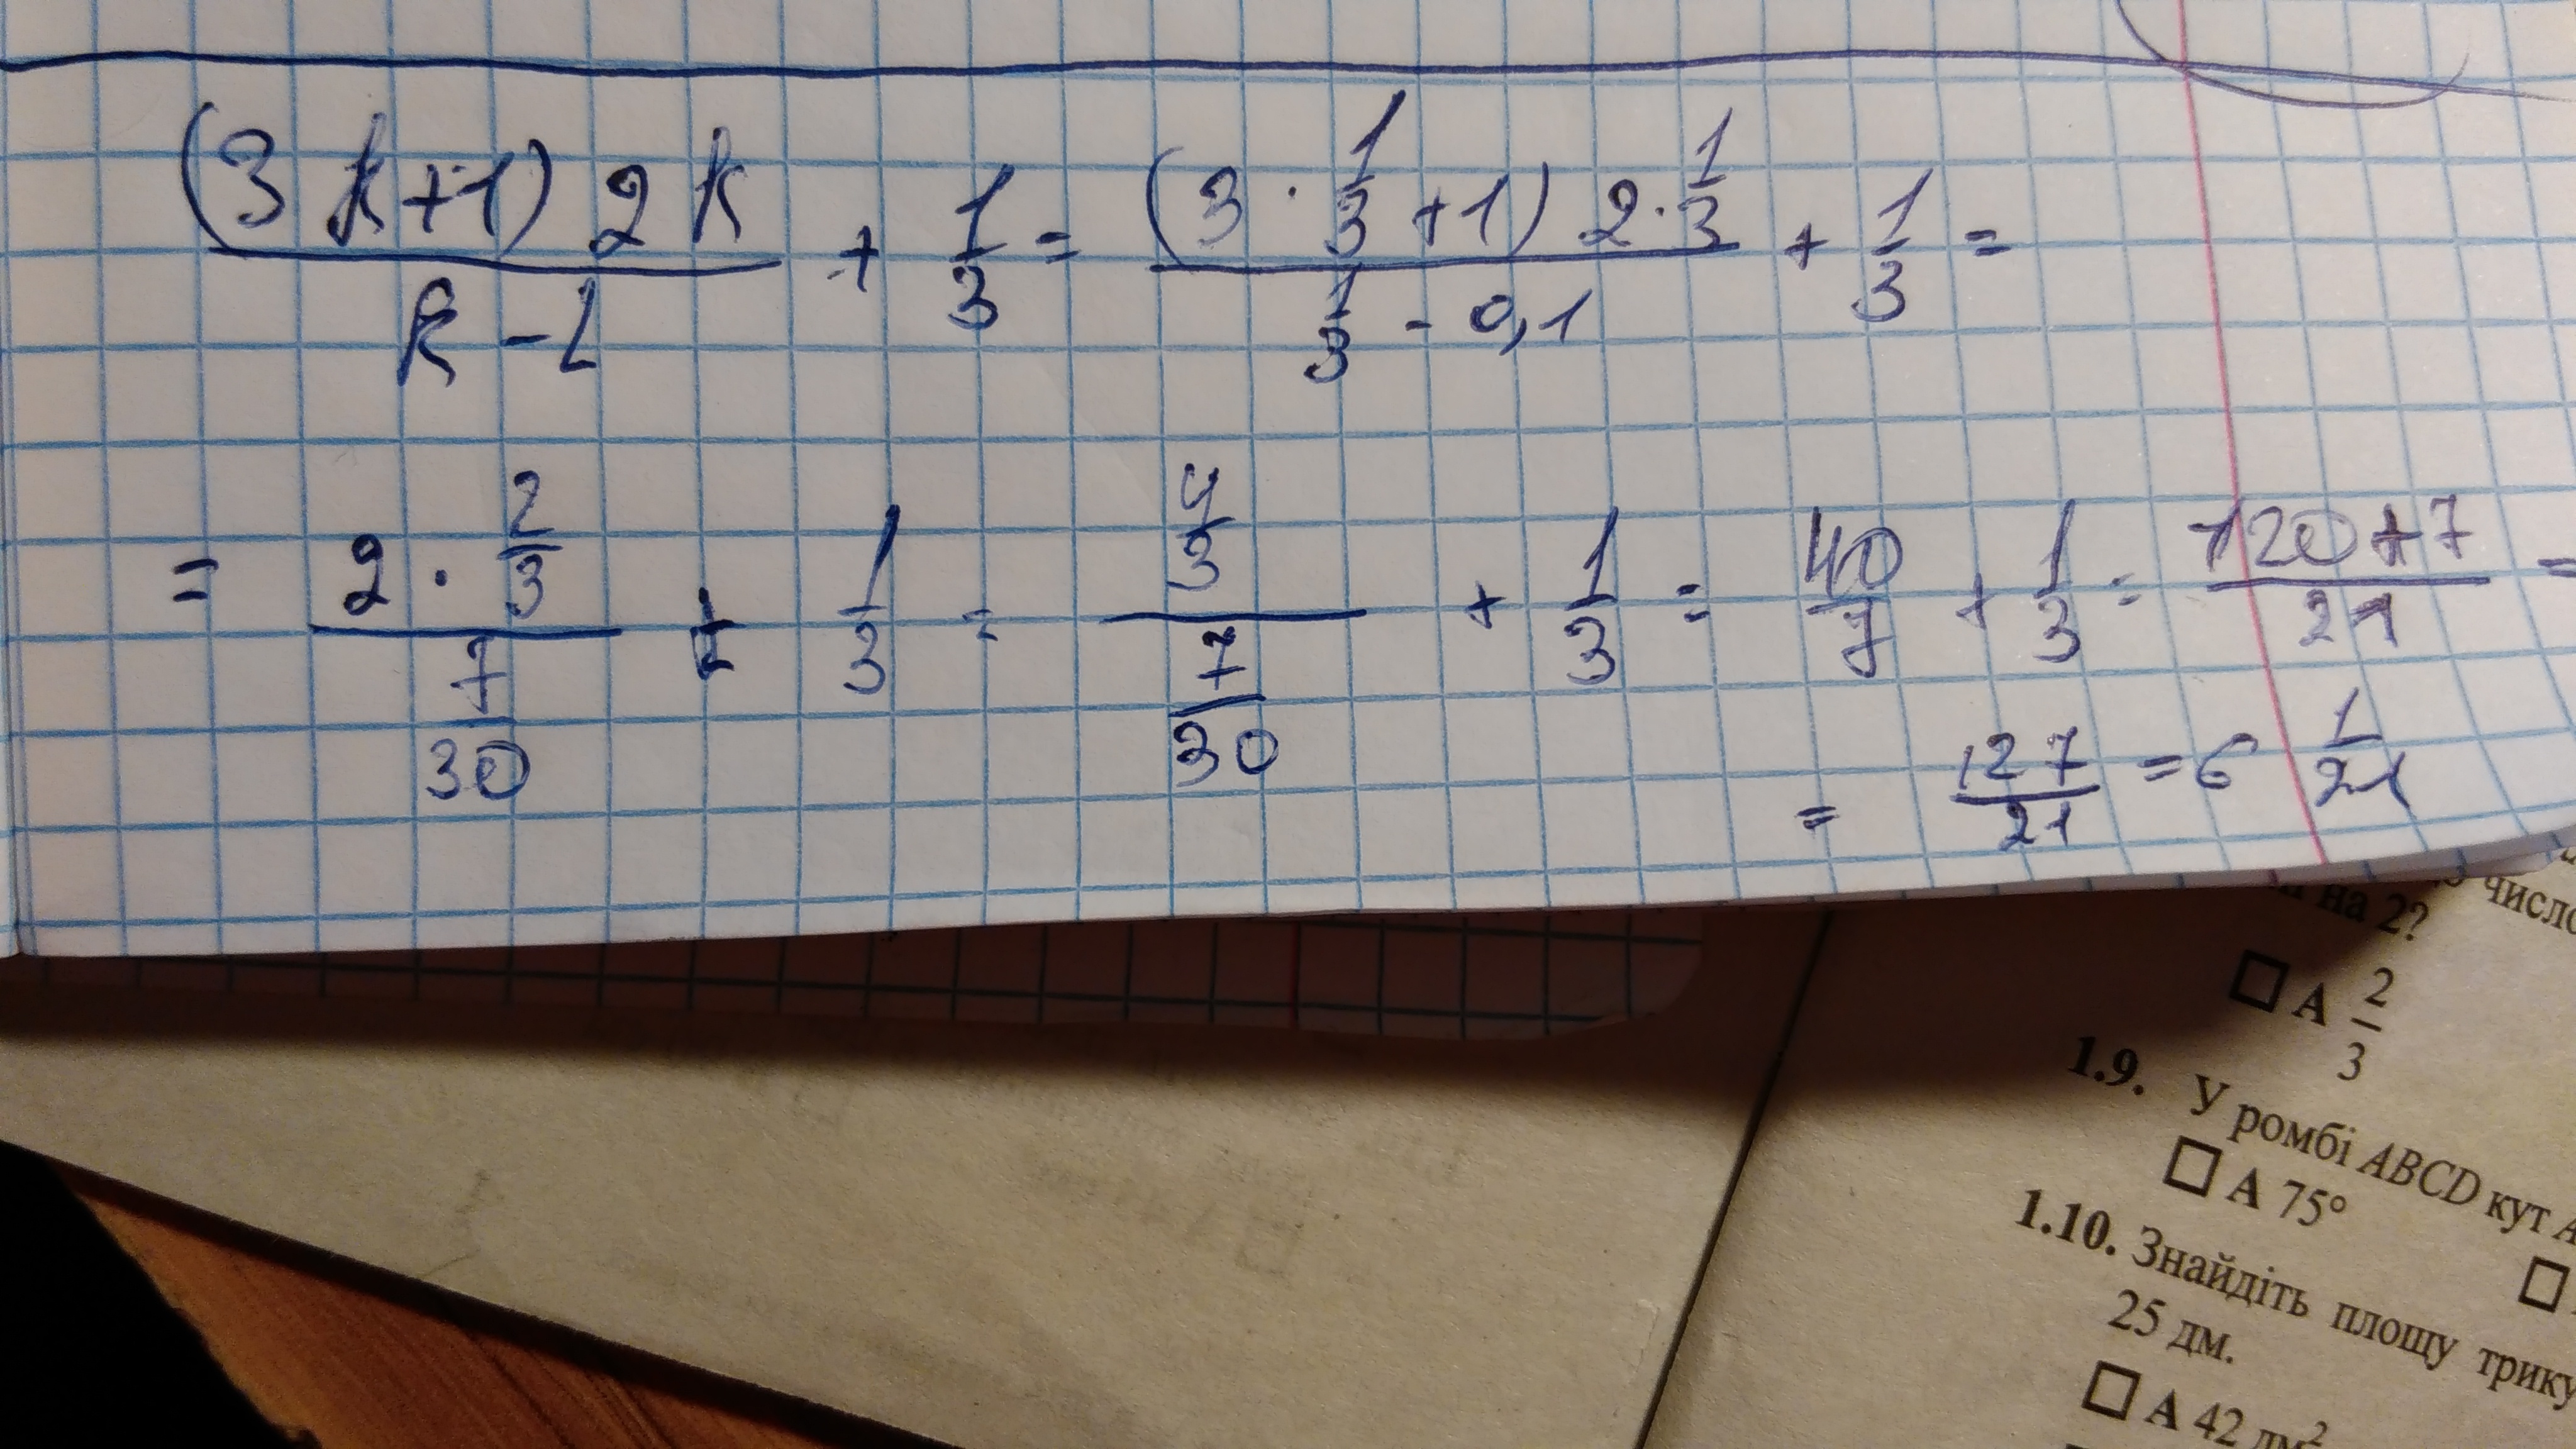 (3k+1)2k/(k-L) + 1/3 = (3·1/3+1)2·1/3/(1/3-0,1) + 1/3 =
= 2·2/3/(7/30) + 1/3 = 4/3/(7/30) + 1/3 = 40/7 + 1/3 = 120+7/21 =
= 127/21 = 6 1/21
число
на 2?
□ А 2/3
1.9. У ромбі ABCD кут A
□ А 75°
□
1.10. Знайдіть площу
25 дм.
□ А 42 дм²